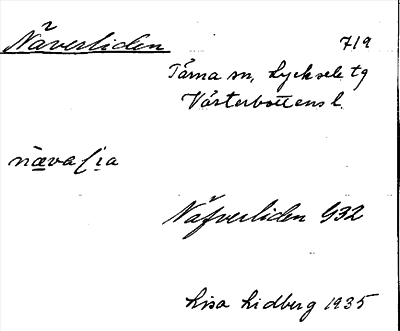 Näverliden 719
Tärna sn, Lycksele tg
Västerbottens l.
nä̀vaḷia
Näfverliden G32
Lisa Lidberg 1935